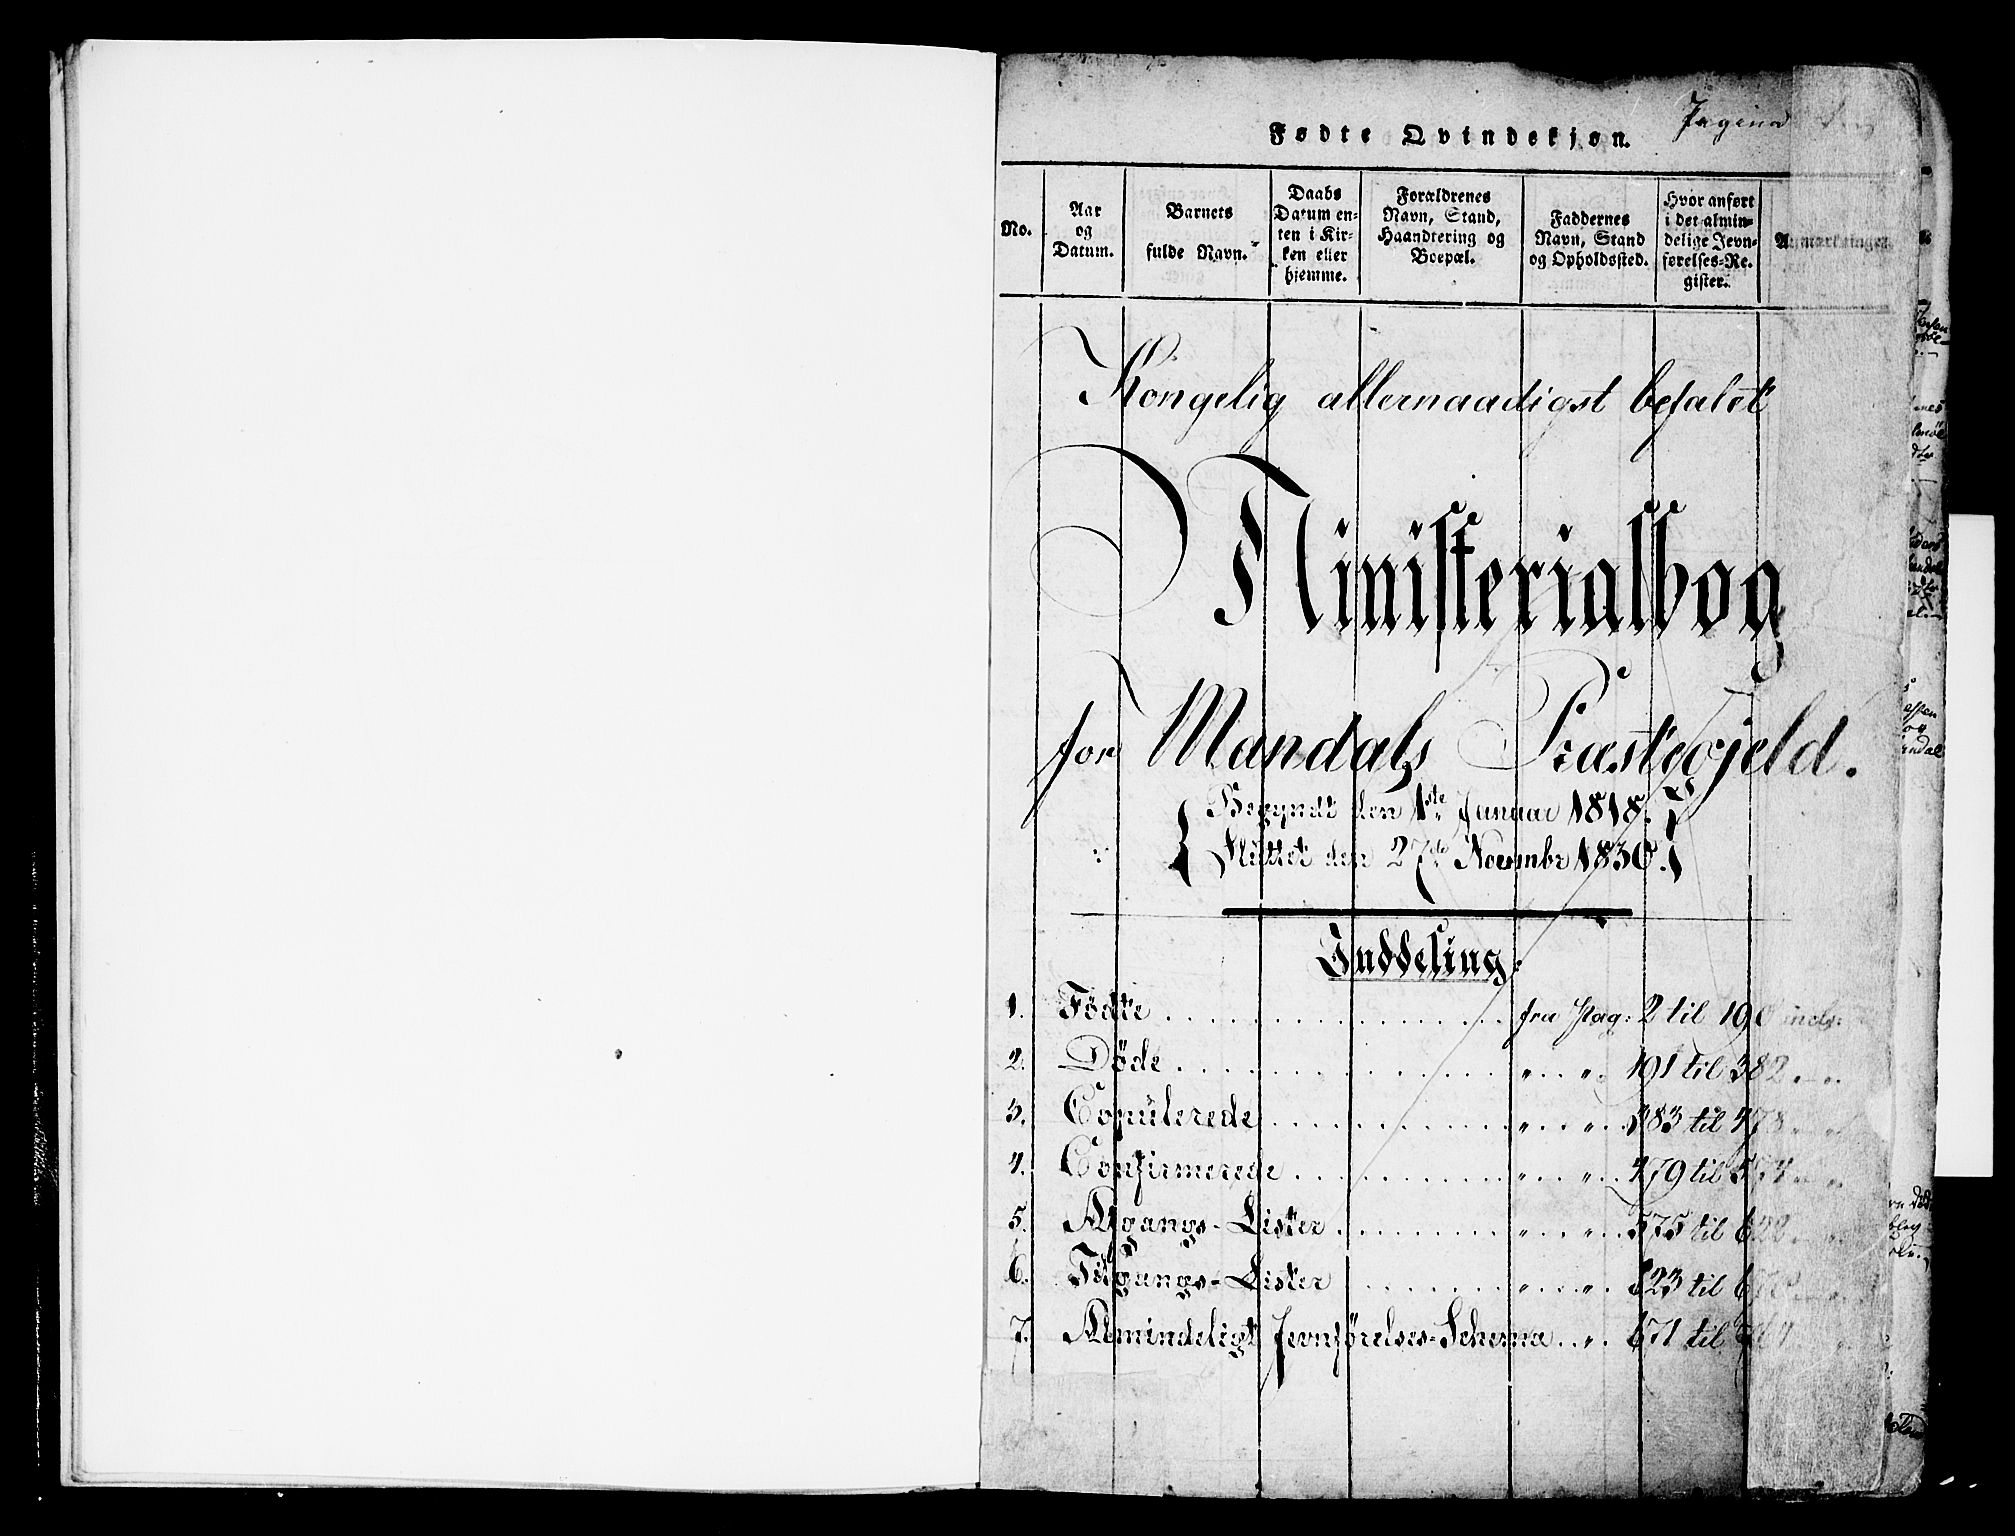 Pagina
Fødte Qvindekjøn.
No.
Aar
og
Datum.
Barnets
fulde Navn.
Daabs
Datum en-
ten i Kir-
ken eller
hjemme.
Forældrenes
Navn, Stand,
Haandtering og
Boepæl.
Faddernes
Navn, Stand
og Opholdssted.
Hvor anført
i det almin-
delige Jevn-
førelses-Re-
gister.
Anmærkninger.
Kongelig allernaadigst befalet
Ministerialbog
for Mandals Præstegjeld.
Begyndt den 1ste Januar 1818.
Sluttet den 27de Novembr 1830.
Inddeling:
1. Födte . . . fra Pag: 2 til 190 incls:
2. Döde . . . „ . . „ . 191 til 382
3. Copulerede . . . „ . . „ . 383 til 478
4. Confirmerede . . . „ . . „ . 479 til 574
5. Afgangs-Lister . . . „ . . „ . 575 til 622
6. Tilgangs-Lister . . . „ . . „ . 623 til 670
7. Almindeligt Jevnförelses-Schema . . „ . 671 til